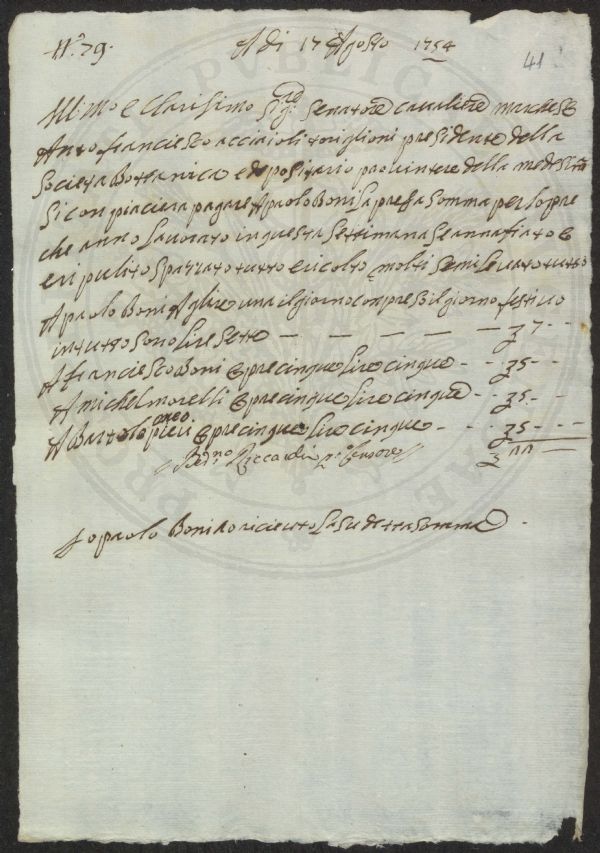 N.° 79. A di 17 Agosto 1754 41
Ill:mo e Clarisimo Sig:re Senatore Cavaliere marchese
Anto franciesco acciaioli toriglioni presidente della
Societa Bottanica e depositario pro interi della medesima
Si conpiacera pagare A paolo Boni La pressa Somma per lopre
che anno Lavorato in questa Settimana Se annafiato e
eri pulito Spazzato tutto e ricolto molti Semi Levato tutto
A paolo Boni A lire una il giorno conpreso il giorno festivo
in tutto sono lire Sette — — — — — — 7 - -
A franciesco Boni opre cinque lire cinque - - 5 - -
A michel morelli opre cinque lire cinque - - 5 - -
A Bartolomeo pieri opre cinque lire cinque - - - 5 - - -
22 - -
Io paolo Boni o ricieuto La su detta somma